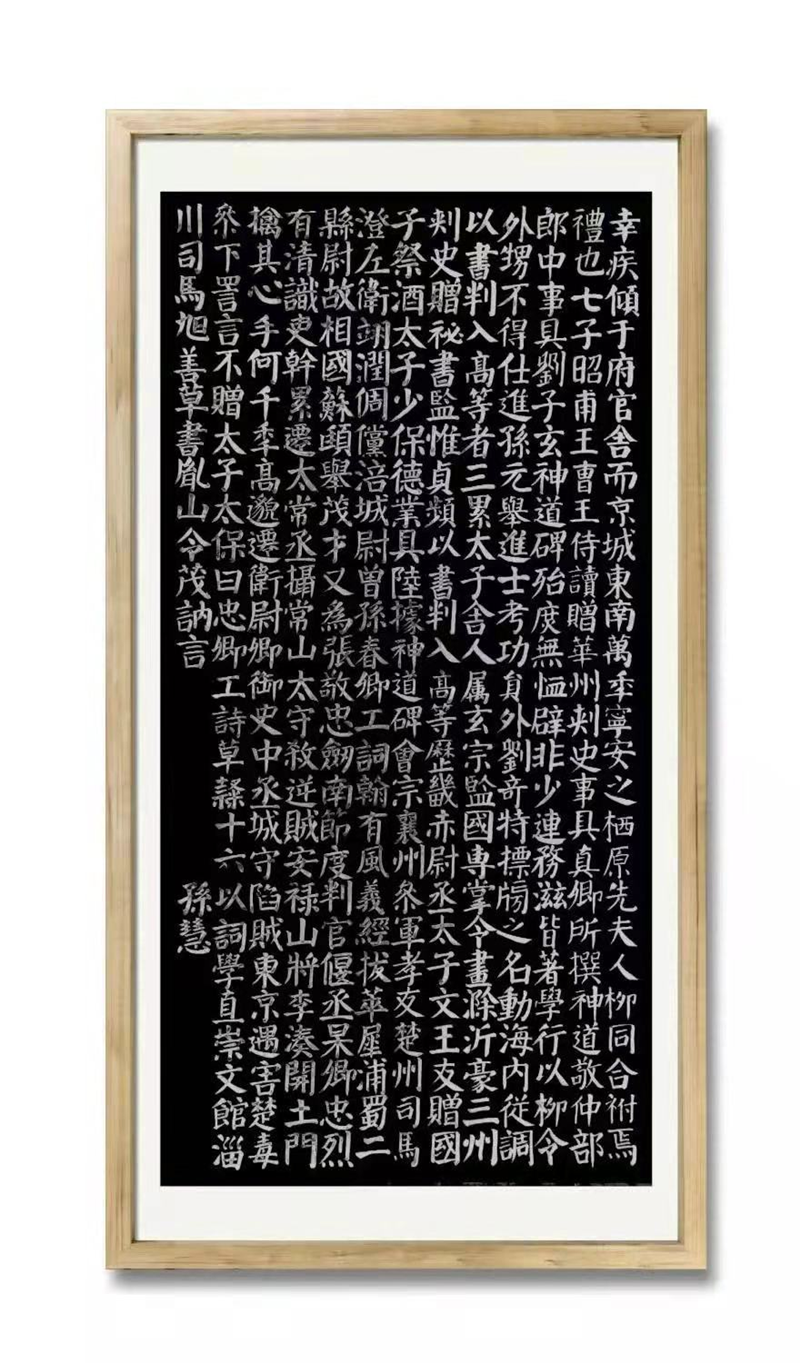 幸疾傾于府官舍而京城東南萬季寧安之栖原先夫人柳同合祔焉
禮也七子昭甫王曹王侍讀贈華州刾史事具真卿所撰神道敬仲部
郎中事具劉子玄神道碑殆庻無恤辟非少連務滋皆著學行以柳令
外甥不得仕進孫元舉進士考功貟外劉奇特標牓之名動海内從調
以書判入高等者三累太子舍人属玄宗監國専掌令畫滁沂豪三州
刾史贈祕書監惟貞頻以書判入高等歷畿赤尉丞太子文王友贈國
子祭酒太子少保德業具陸據神道碑會宗襄州叅軍孝友楚州司馬
澄左衛翊潤倜儻涪城尉曽孫春卿工詞翰有風義經拔萃犀浦蜀二
縣尉故相國蘇頲舉茂才又為張敬忠劒南節度判官偃丞杲卿忠烈
有清識吏幹累遷太常丞攝常山太守殺逆賊安禄山將李湊開土門
擒其心手何千季高邈遷衛尉卿御史中丞城守陷賊東京遇害楚毒
叅下詈言不贈太子太保曰忠卿工詩草隸十六以詞學直崇文館淄
川司馬旭善草書胤山令茂訥言 孫慧